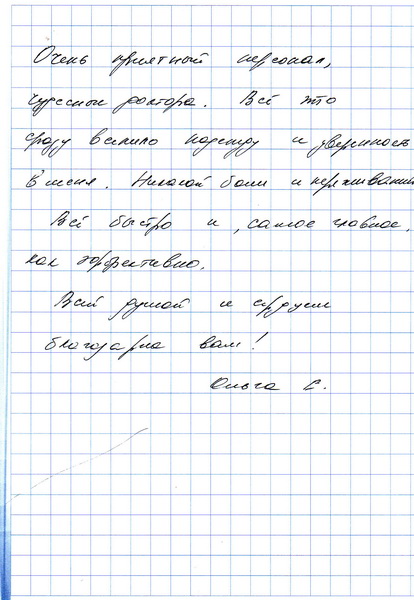 Очень приятный персонал,
чудесные доктора. Всё это
сразу вселило надежду и уверенность
в меня. Никакой боли и переживаний
Всё быстро и, самое главное,
как эффективно.
Всей душой и сердцем
благодарна вам!
Ольга С.